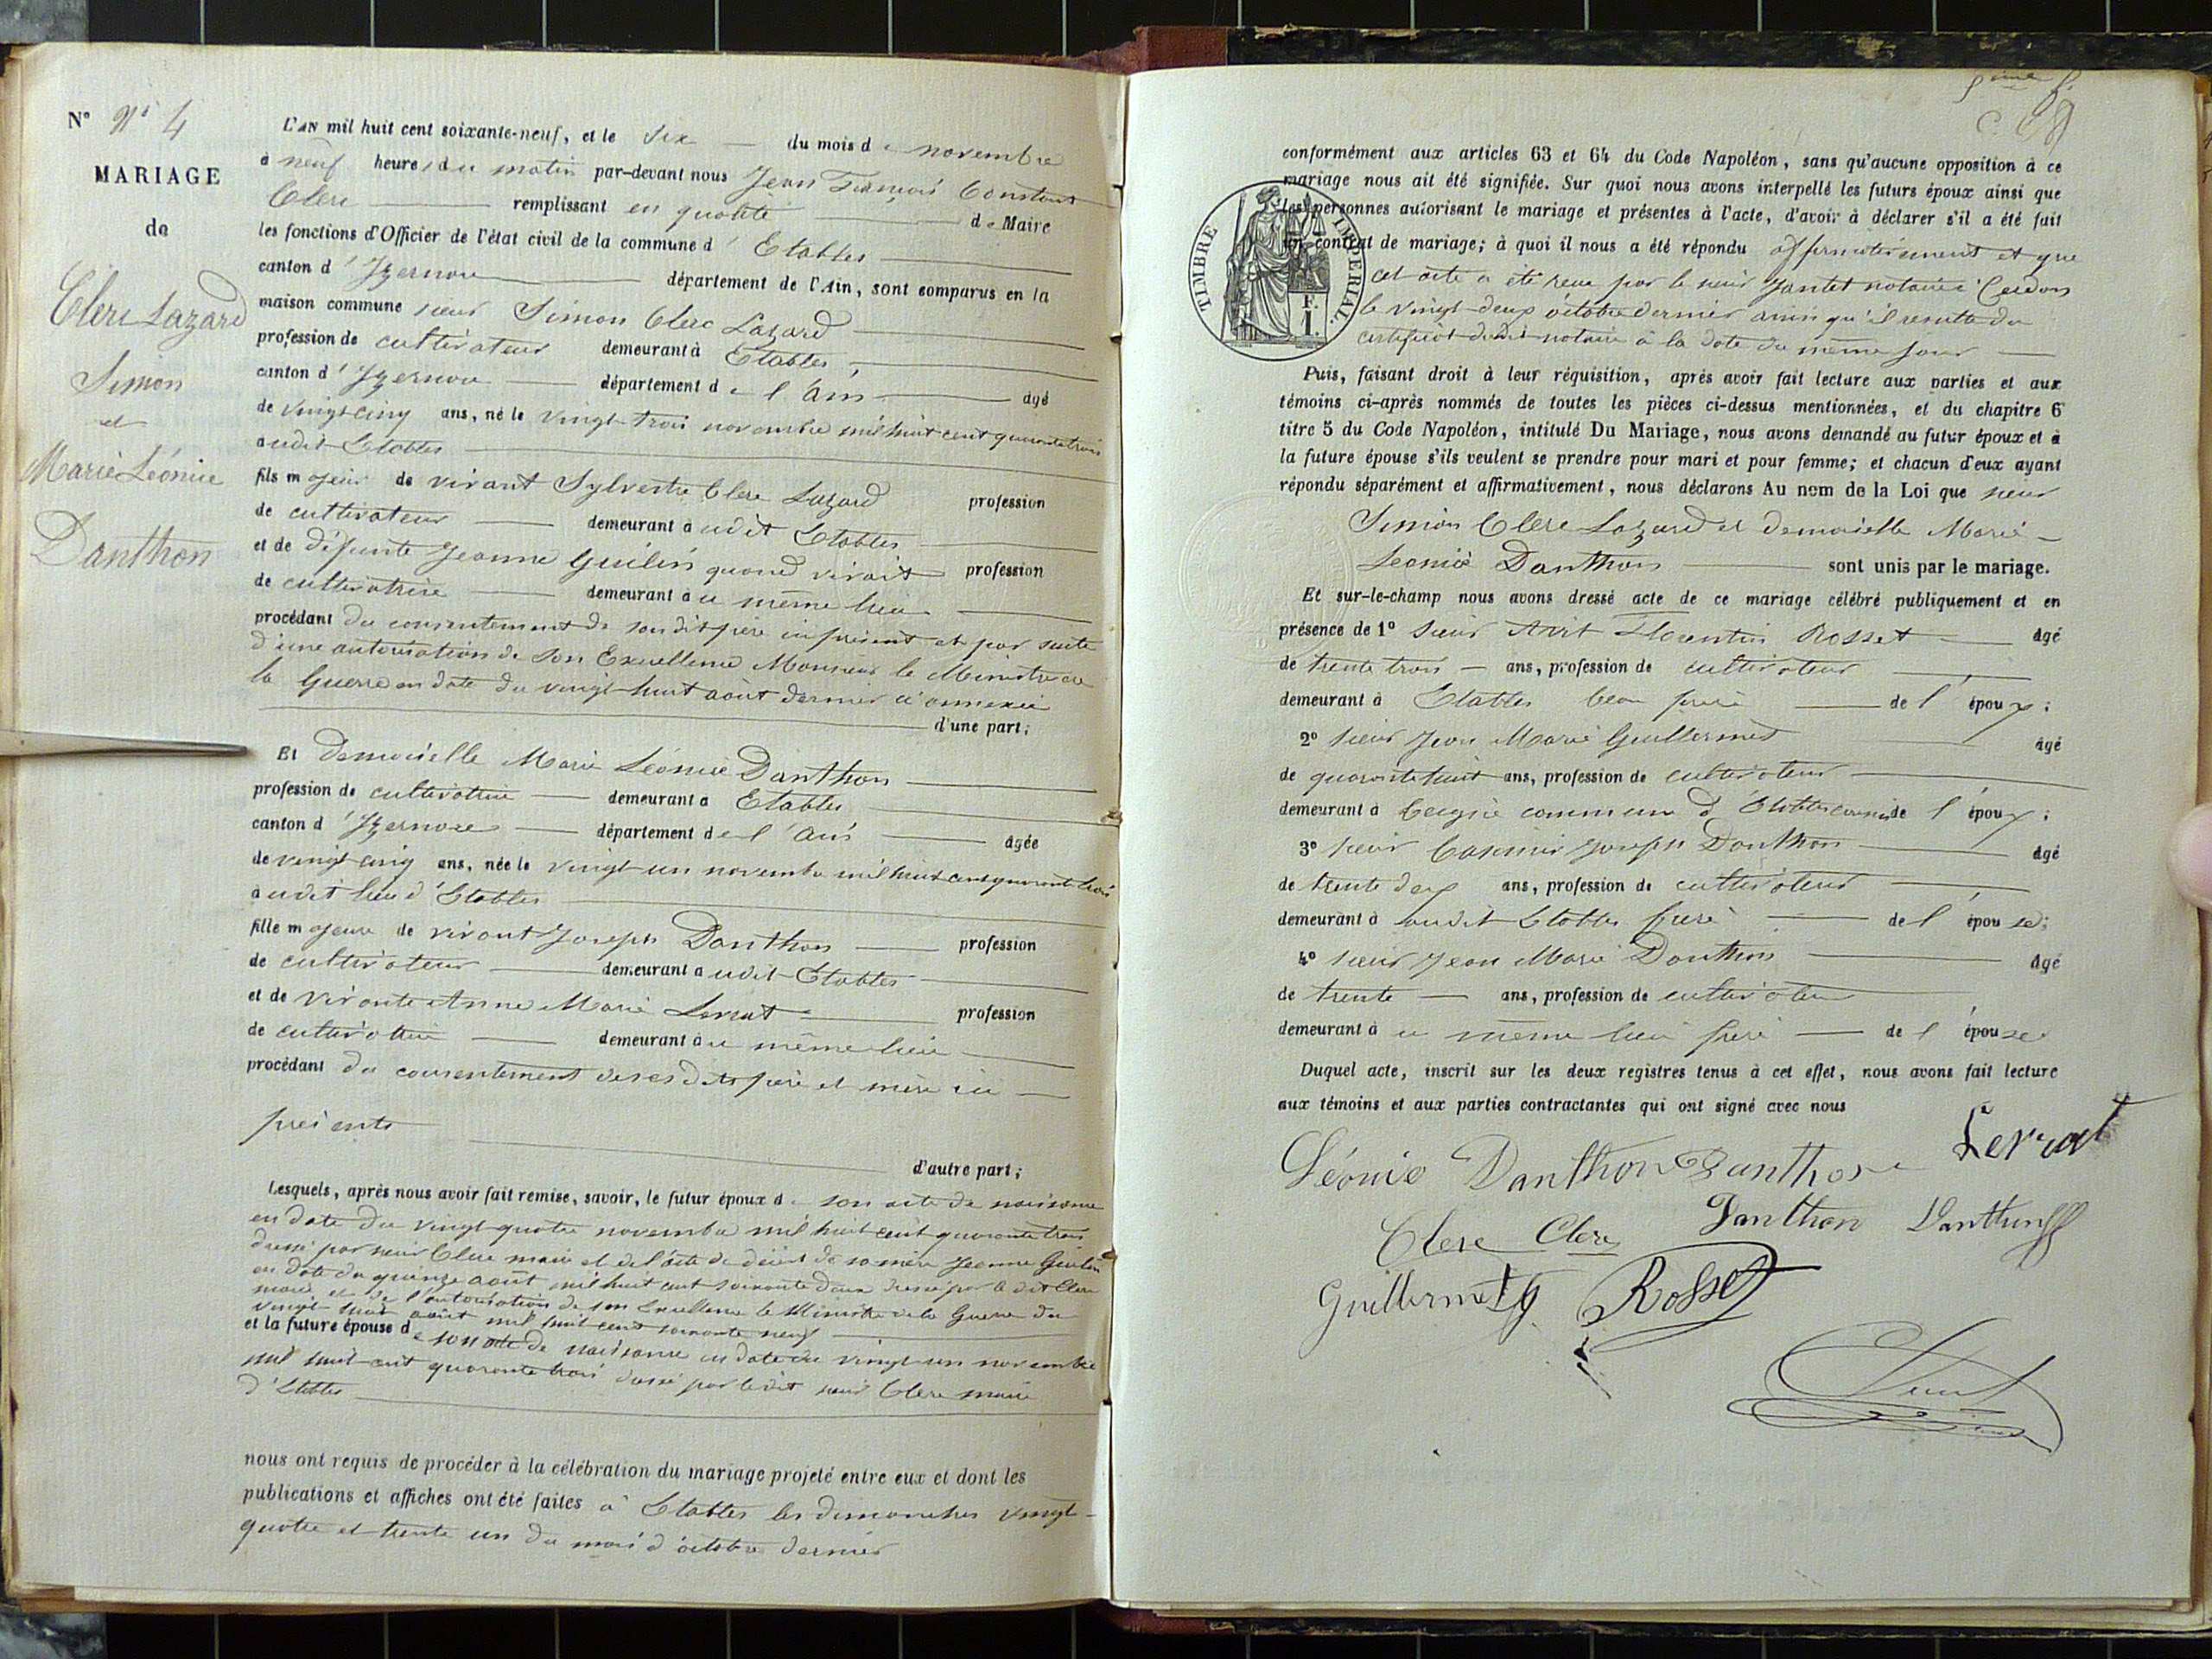 N° n° 4
MARIAGE
de
Clerc Lazard
Simon
et
Marie Léonie
Danthon
L'AN mil huit cent soixante-neuf, et le six du mois de novembre
à neuf heures du matin par-devant nous Jean François Constant
Clerc remplissant en qualité de Maire
les fonctions d'Officier de l'état civil de la commune d'Etables
canton d'Izernore département de l'Ain, sont comparus en la
maison commune sieur Simon Clerc Lazard
profession de cultivateur demeurant à Etables,
canton d'Izernore département de l'Ain âgé
de vingt cinq ans, né le vingt-trois novembre mil huit cent quarante trois
audit Etables
fils majeur de vivant Sylvestre Clerc Lazard profession
de cultivateur demeurant audit Etables
et de défunte Jeanne Guilin quand vivait profession
de cultivatrice demeurant au même lieu
procédant du consentement de son dit père ici présent et par suite
d'une autorisation de Son Excellence Monsieur le Ministre de
la Guerre en date du vingt-huit août dernier ci annexée
d'une part;
Et demoiselle Marie Léonie Danthon
profession de cultivatrice demeurant à Etables
canton d'Izernore département de l'Ain âgée
de vingt cinq ans, née le vingt-un novembre mil huit cent quarante trois
audit lieu d'Etables
fille majeure de vivant Joseph Danthon profession
de cultivateur demeurant audit Etables
et de vivante Anne Marie Levrat profession
de cultivatrice demeurant au même lieu
procédant du consentement de ses dits père et mère ici
présents
d'autre part;
Lesquels, après nous avoir fait remise, savoir, le futur époux de son acte de naissance
en date du vingt quatre novembre mil huit cent quarante trois
dressé par sieur Clerc maire et de l'acte de décès de sa mère Jeanne Guilin
en date du quinze août mil huit cent soixante deux dressé par le dit Clerc
maire et de l'autorisation de son Excellence le Ministre de la Guerre du
vingt huit août mil huit cent soixante neuf
et la future épouse de son acte de naissance en date du vingt-un novembre
mil huit cent quarante trois dressé par ledit sieur Clerc maire
d'Etables
nous ont requis de procéder à la célébration du mariage projeté entre eux et dont les
publications et affiches ont été faites à Etables les dimanches vingt-
quatre et trente un du mois d'octobre dernier
conformément aux articles 63 et 64 du Code Napoléon, sans qu'aucune opposition à ce
mariage nous ait été signifiée. Sur quoi nous avons interpellé les futurs époux ainsi que
les personnes autorisant le mariage et présentes à l'acte, d'avoir à déclarer s'il a été fait
un contrat de mariage; à quoi il nous a été répondu affirmativement et que
cet acte a été reçu par le sieur Jantet notaire à Cerdon
le vingt-deux octobre dernier ainsi qu'il résulte du
certificat dudit notaire à la date du même jour
TIMBRE IMPERIAL.
F.
1.
Puis, faisant droit à leur réquisition, après avoir fait lecture aux parties et aux
témoins ci-après nommés de toutes les pièces ci-dessus mentionnées, et du chapitre 6
titre 5 du Code Napoléon, intitulé Du Mariage, nous avons demandé au futur époux et à
la future épouse s'ils veulent se prendre pour mari et pour femme; et chacun d'eux ayant
répondu séparément et affirmativement, nous déclarons Au nom de la Loi que sieur
Simon Clerc Lazard et demoiselle Marie-
Léonie Danthon sont unis par le mariage.
Et sur-le-champ nous avons dressé acte de ce mariage célébré publiquement et en
présence de 1° sieur Avit Florentin Rosset âgé
de trente trois ans, profession de cultivateur
demeurant à Etables beau frère de l'époux;
2° sieur Jean Marie Guillermet âgé
de quarante huit ans, profession de cultivateur
demeurant à Ceignes commune d'Etables cousin de l'époux;
3° sieur Casimir Joseph Danthon âgé
de trente deux ans, profession de cultivateur
demeurant à audit Etables frère de l'épouse;
4° sieur Jean Marie Danthon âgé
de trente ans, profession de cultivateur
demeurant à u même lieu frère de l'épouse
Duquel acte, inscrit sur les deux registres tenus à cet effet, nous avons fait lecture
aux témoins et aux parties contractantes qui ont signé avec nous
Léonie Danthon Danthon Levrat
Clerc Clerc Danthon Danthon
Guillermet Rosset
Clerc